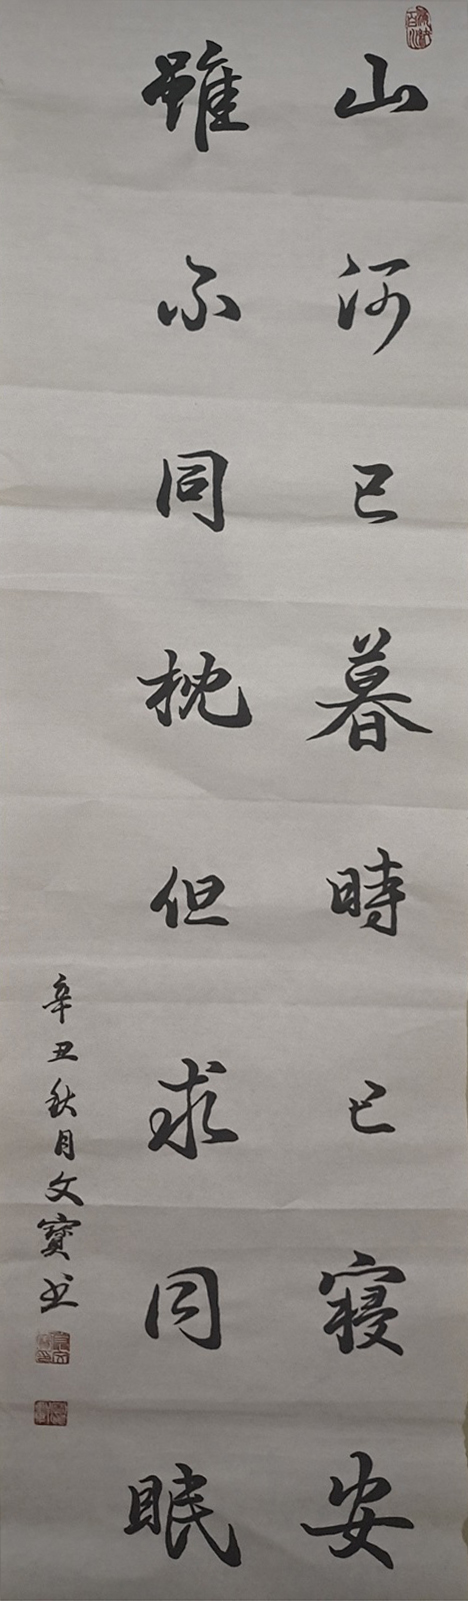 山河已暮時已寢安
雖不同枕但求同眠
辛丑秋月文寶书